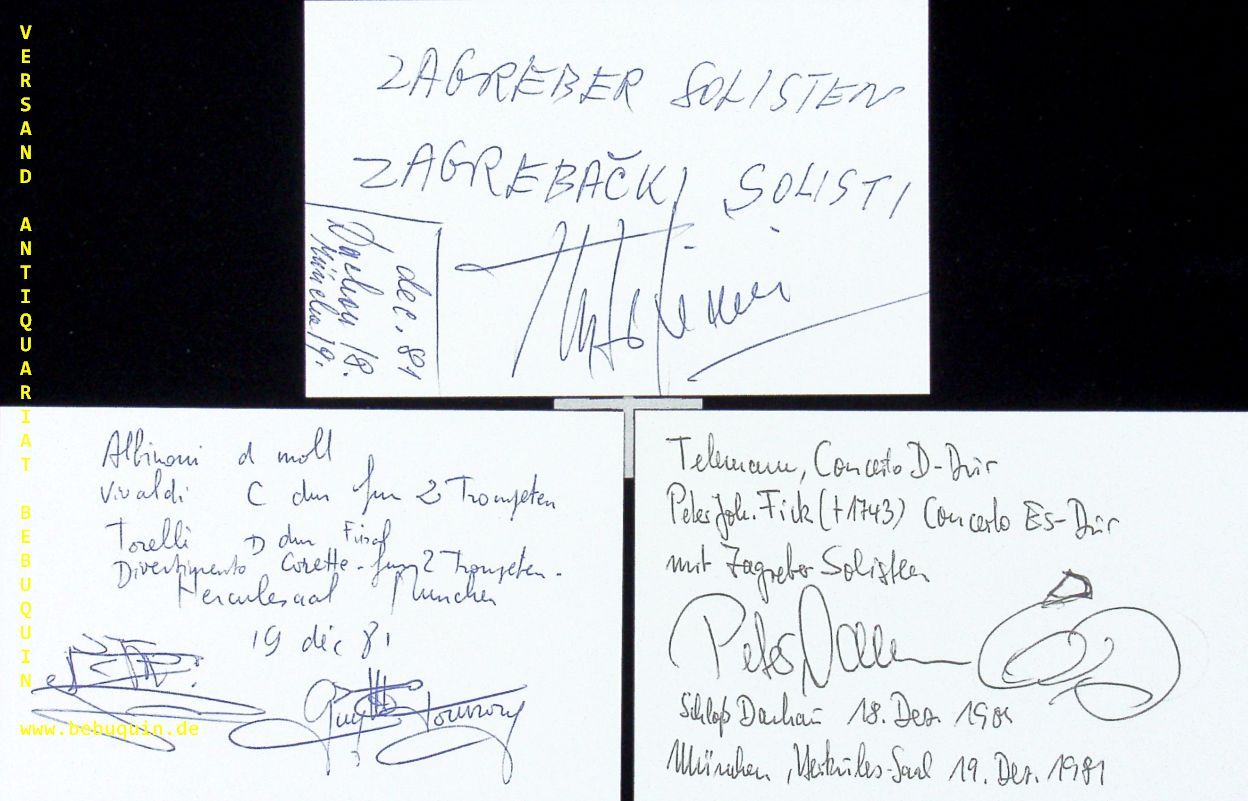 VERSAND ANTIQUARIAT BEBUQUIN
www.bebuquin.de
ZAGREBER SOLISTEN
ZAGREBAČKI SOLISTI
dec. 81
Dachau 18.
München 19.
Albinoni d moll
Vivaldi C dur fur 2 Trompeten
Torelli D dur
Divertimento Corette - fur 2 Trompeten -
Herculesaal Munchen
19 déc 81
Guy Touvron
Telemann, Concerto D-Dur
Peter Joh. Fick (†1743) Concerto Es-Dur
mit Zagreber Solisten
Peter Damm
Schloß Dachau 18. Dez. 1981
München, Herkules-Saal 19. Dez. 1981